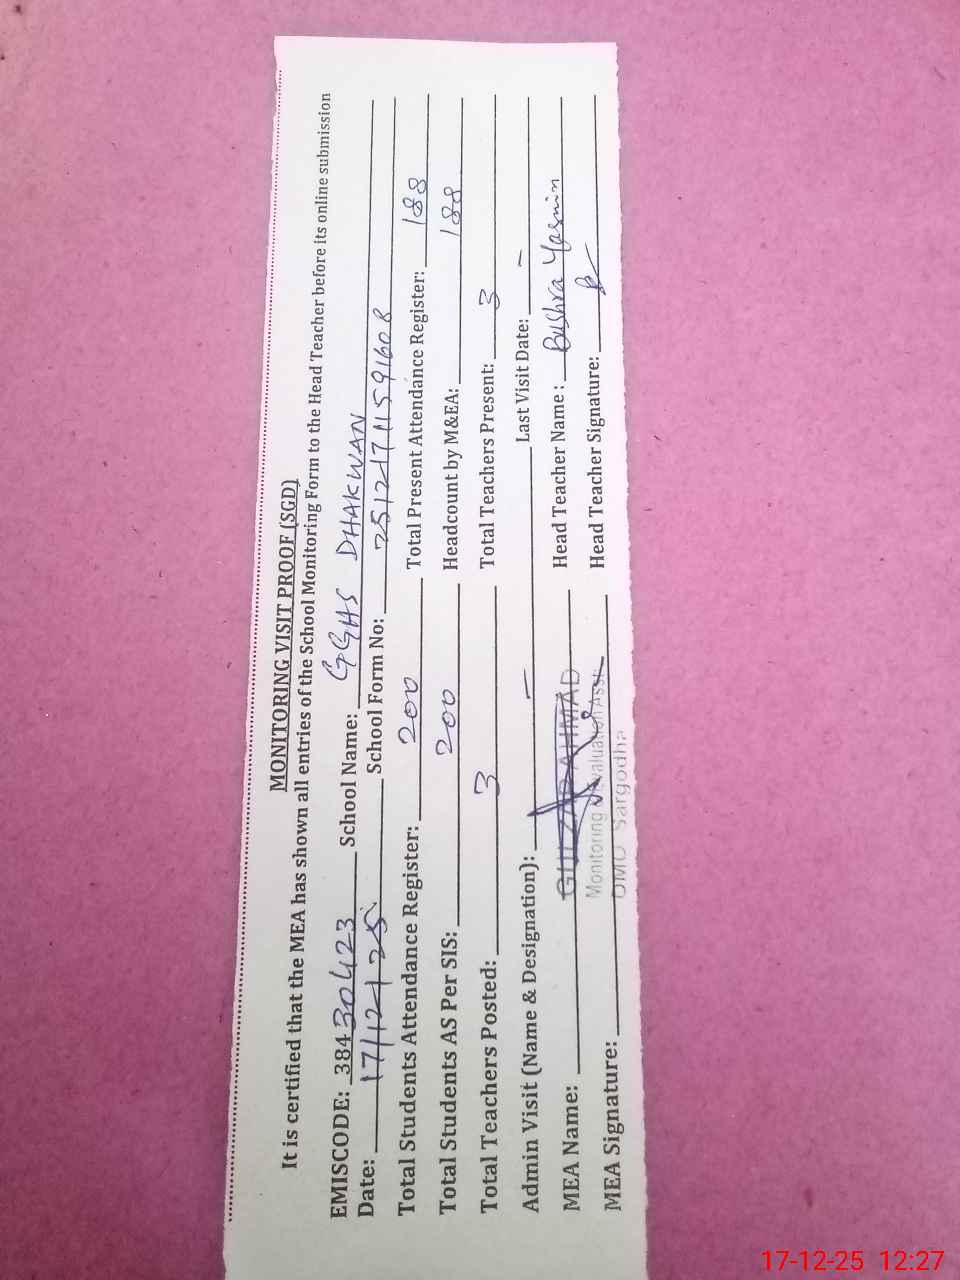 MONITORING VISIT PROOF (SGD)
It is certified that the MEA has shown all entries of the School Monitoring Form to the Head Teacher before its online submission
EMISCODE: 38430423 School Name: GGHS DHAKWAN
Date: 17/12/25 School Form No: 25121711591608
Total Students Attendance Register: 200 Total Present Attendance Register: 188
Total Students AS Per SIS: 200 Headcount by M&EA: 188
Total Teachers Posted: 3 Total Teachers Present: 3
Admin Visit (Name & Designation): – Last Visit Date: –
MEA Name: GULZAR AHMAD Head Teacher Name : Bushra Yasmin
Monitoring & Evaluation Asstt
MEA Signature: Head Teacher Signature:
DMO Sargodha
17-12-25 12:27